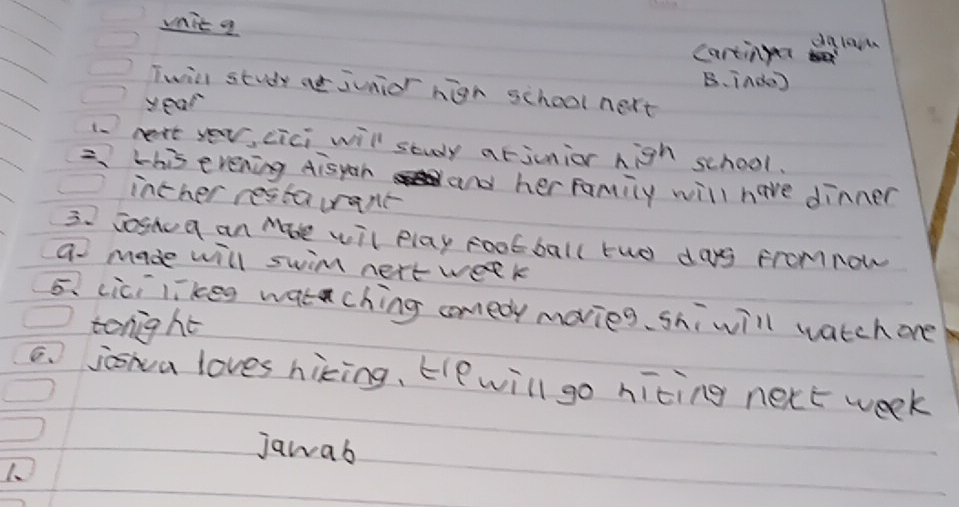 unit 9
(artinya dalam
B.indo)
I will study at junior high school next
year
1. next year, cici will study at junior high school.
2. this evening Aisyah and her family will have dinner
in ther restaurant
3. Joshua an Made wil play football two days from now
4. made will swim next week
5. cici likes wataching comedy movies. shi will watch one
tonight
6. joshua loves hiking. He will go hiting next week
jawab
1.